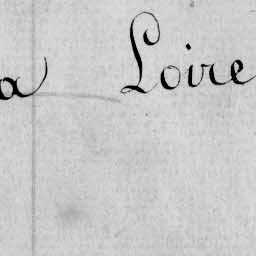 a Loire